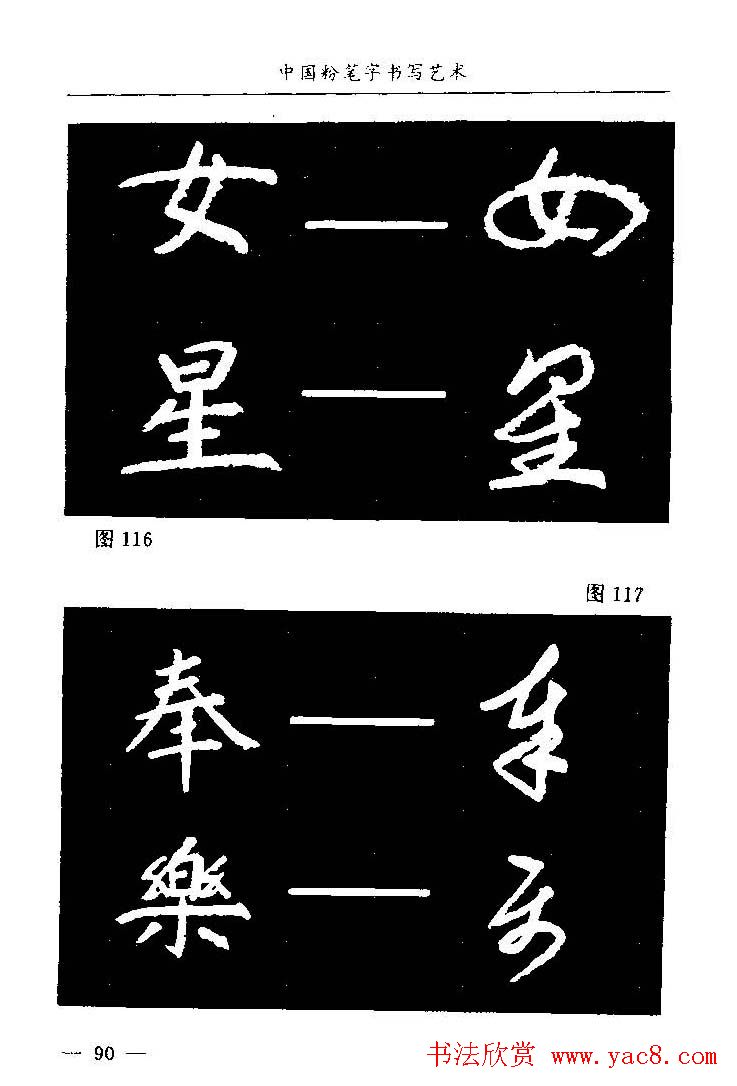 中国粉笔字书写艺术
女 — 女
星 — 星
图 116
图 117
奉 — 奉
樂 — 乐
— 90 —
书法欣赏 www.yac8.com